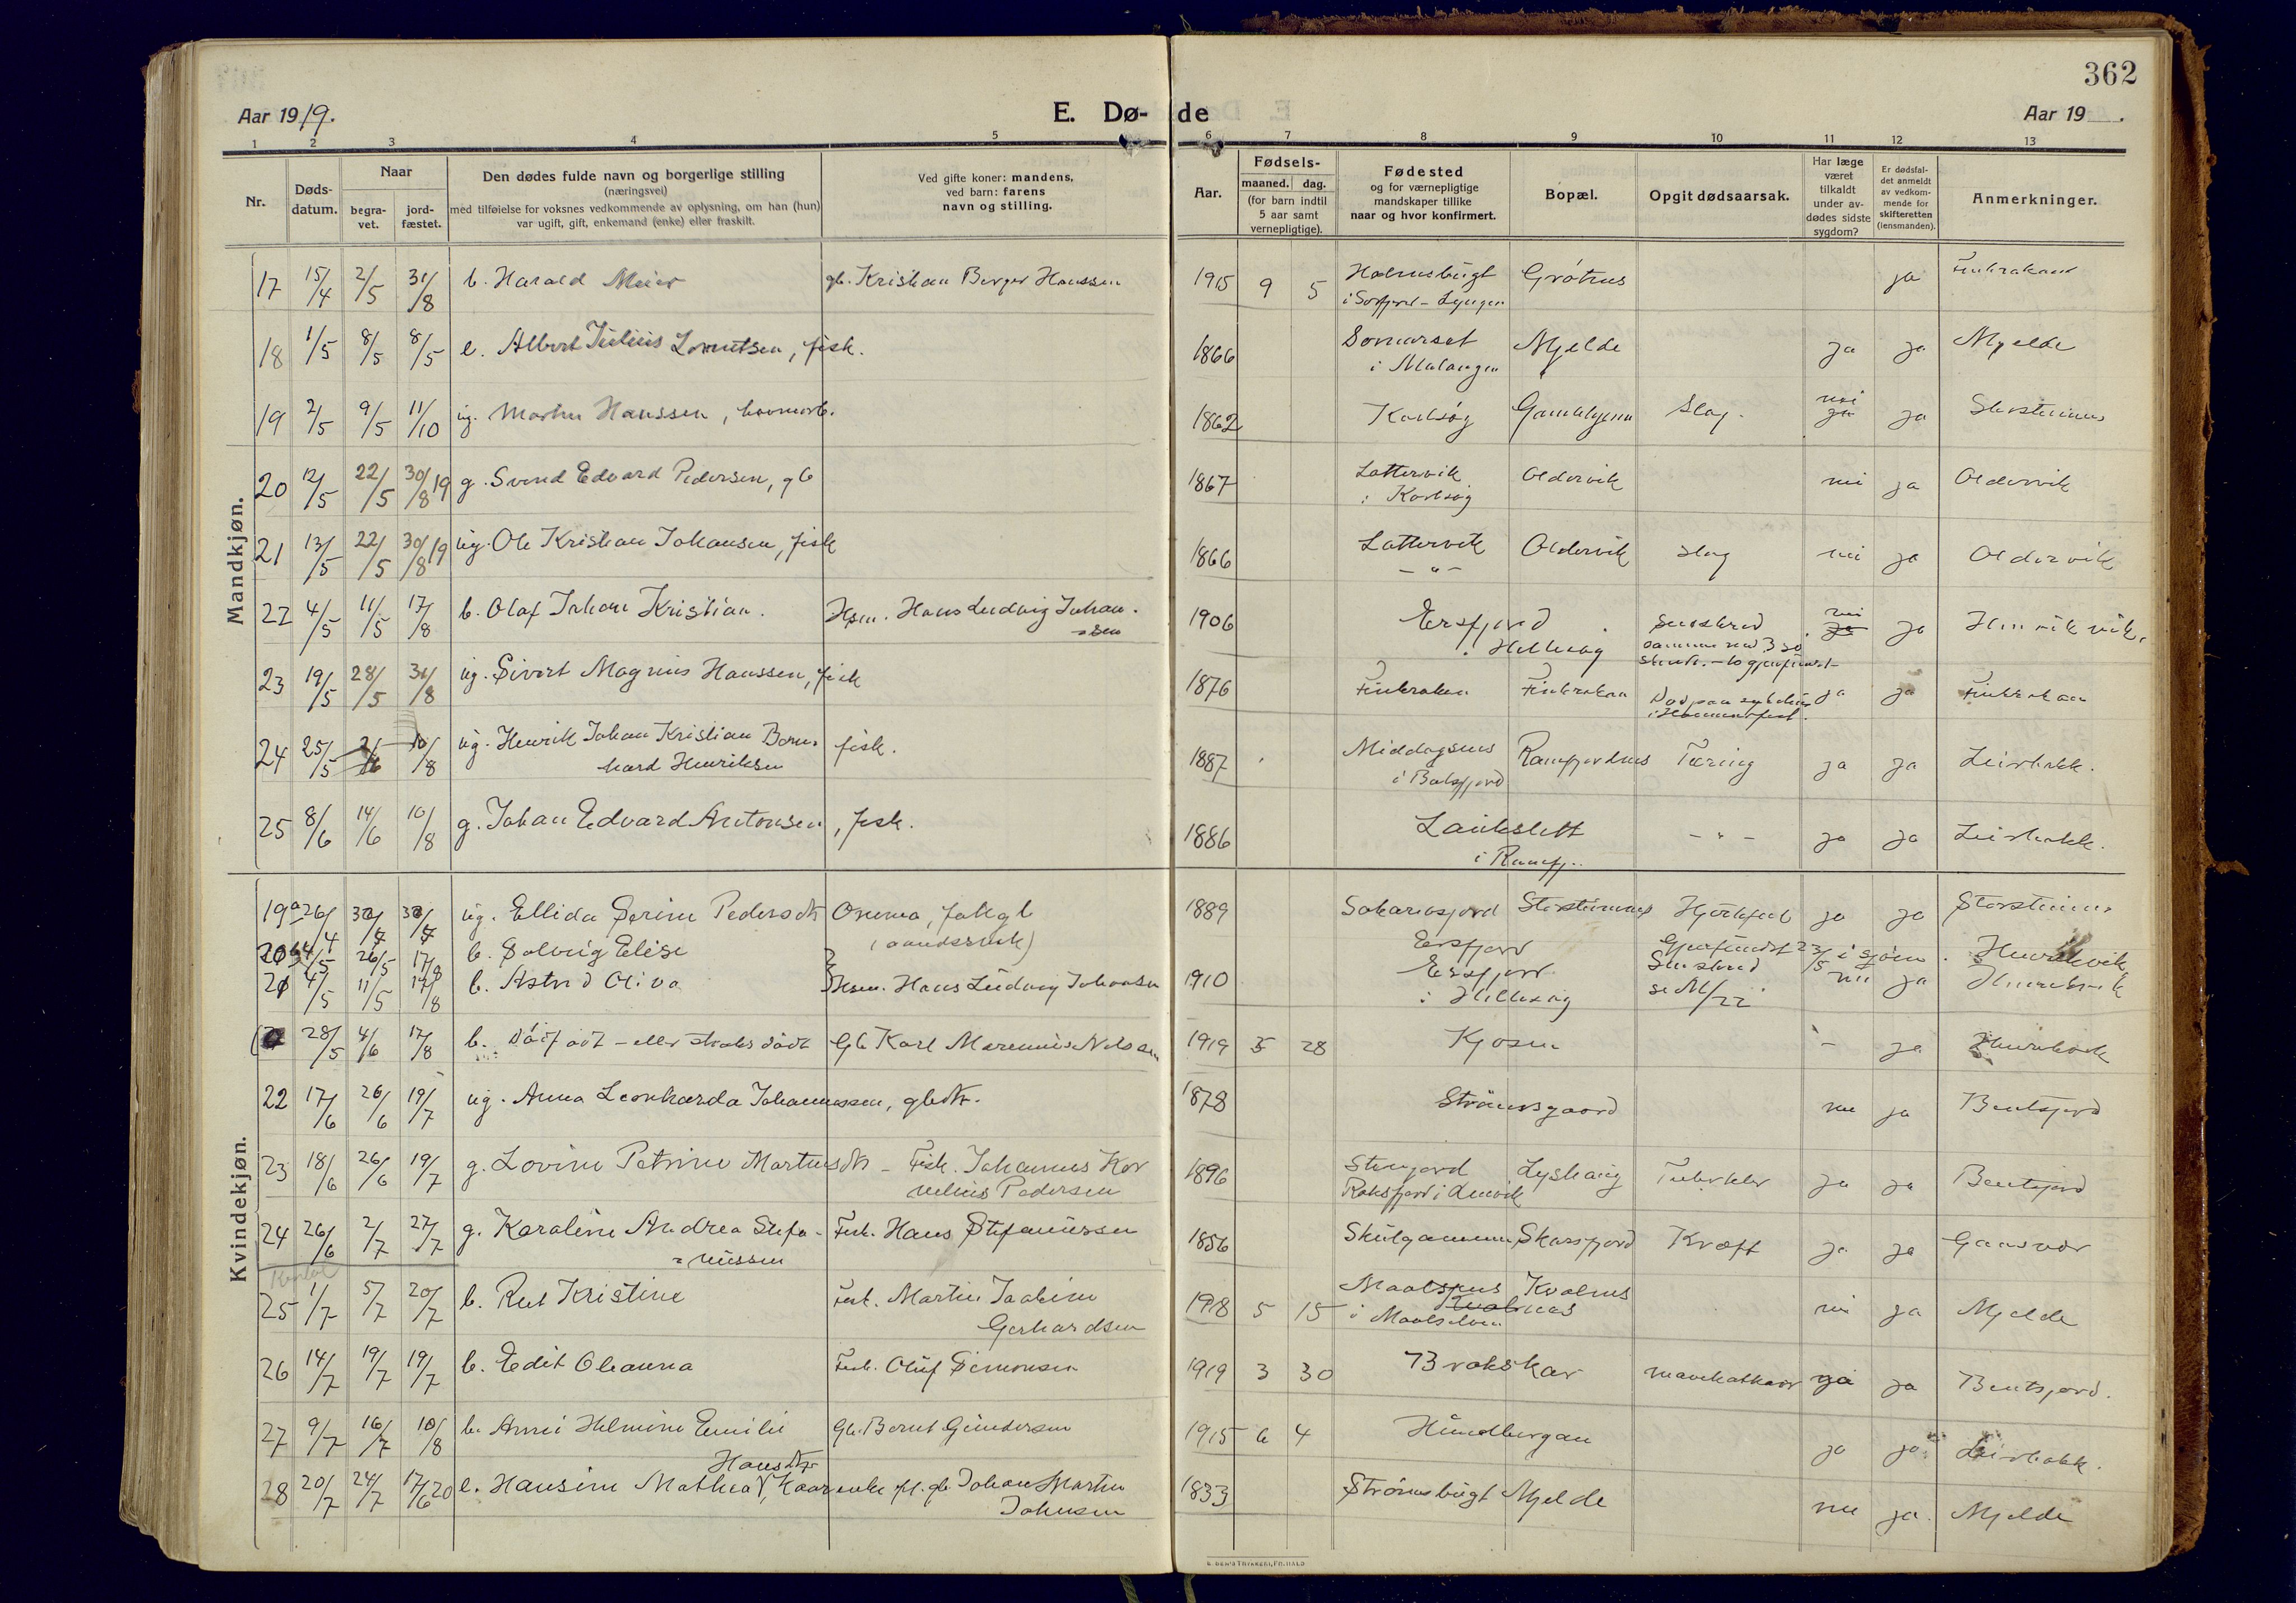 362
Aar 1919.
E. Dø-
de
Aar 19 .
1 2 3 4 5 6 7 8 9 10 11 12 13
Nr.
Døds-
datum.
Naar
begra-
vet.
jord-
fæstet.
Den dødes fulde navn og borgerlige stilling
(næringsvei)
med tilføielse for voksnes vedkommende av oplysning, om han (hun)
var ugift, gift, enkemand (enke) eller fraskilt.
Ved gifte koner: mandens,
ved barn: farens
navn og stilling.
Aar.
Fødsels-
maaned. dag.
(for barn indtil
5 aar samt
vernepligtige).
Fødested
og for værnepligtige
mandskaper tillike
naar og hvor konfirmert.
Bopæl.
Opgit dødsaarsak.
Har læge
været
tilkaldt
under av-
dødes sidste
sygdom?
Er dødsfal-
det anmeldt
av vedkom-
mende for
skifteretten
(lensmanden).
Anmerkninger.
Mandkjøn.
17 15/4 2/5 31/8 b. Harald Meier gb. Kristian Berger Hanssen 1915 9 5 Holmbugt Grøtnes ja Finkraken
i Sørfjord - Lyngen
18 1/5 8/5 8/5 e. Albert Julius Lorentsen, fisk. 1866 Somarset Mjelde ja ja Mjelde
i Malangen
19 2/5 9/5 11/10 ug. Martin Hanssen, havnearb. 1862 Karlsøy Gammelgjern Slag. nei ja Storsteinnes
20 12/5 22/5 30/8 19 g. Svend Edvard Pedersen, gb 1867 Lattervik Oldervik nei ja Oldervik
i Karlsøy
21 13/5 22/5 30/8 19 ug. Ole Kristian Johansen, fisk 1866 Lattervik Oldervik slag nei ja Oldervik
- " -
22 4/5 11/5 17/8 b. Olaf Johan Kristian. Hsm. Hans Ludvig Johan-
sen 1906 Ersfjord Sneskred nei ja Henrikvik.
i Hillesøy sammen med 3 sø
sken.
23 19/5 28/5 31/8 ug. Sivert Magnus Hanssen, fisk 1876 Finkraken Finkraken Død paa sykehus ja ja Finkraken
i Hammerfest.
24 25/5 2/6 10/8 ug. Henrik Johan Kristian Bern- fisk. 1887 Middagsnes Ramfjordnes Tæring ja ja Leirbakk.
hard Henriksen i Balsfjord
25 8/6 14/6 10/8 g. Johan Edvard Antonsen, fisk. 1886 Laukslett - " - ja ja Leirbakk.
i Ramfj.
Kvindekjøn.
19a 26/4 ug. Ellida Serine Pedersdtr 1889 Sakariasjord Storsteinnes Hjertefeil ja ja Storsteinnes
(aandssvak)
20 4/5 26/5 17/8 b. Solveig Elise Ersfjord Gjenfundet 23/5 i sjøen. Henrikvik
21 4/5 11/5 17/8 b. Astrid Oliva Hsm. Hans Ludvig Johansen 1910 Ersfjord Sneskred nei ja Henrikvik
i Hillesøy se M/22
28/5 4/6 17/8 b. Dødfødt - eller straks død Gb Karl Marenius Nilssen 1919 5 28 Kjosen - ja Henrikvik
22 17/6 26/6 19/7 ug. Anna Leonharda Johannessen, gbdtr. 1878 Strømsgaard nei ja Bentsjord
23 18/6 26/6 19/7 g. Lovine Petrine Martinsdtr - Fisk. Johannes Kor
nelius Pedersen 1896 Stenjord Lyshaug Tuberkler ja ja Bentsjord
Roksfjord i Lenvik
24 26/6 2/7 27/7 g. Karoline Andrea Stefa- Fisk. Hans Stefanussen 1856 Skulgammen Skarsfjord Kræft ja ja Gaasvær
nussen
25 1/7 5/7 20/7 b. Rut Kristine Fisk. Martin Joakim
Gerhardsen 1918 5 15 Maalsnes Kvalnes nei ja Mjelde
i Maalselven
26 14/7 19/7 19/7 b. Edit Oleanna Fisk. Oluf Simonsen 1919 3 30 Brokskar mavekatharr ja ja Bentsjord.
27 9/7 16/7 10/8 b. Anni Helmine Emilie Gb. Bernt Gundersen 1915 6 4 Hundbergan ja ja Leirbakk.
28 20/7 24/7 17/6 20 e. Hansine Mathea Hansdtr, kaarenke gb. Johan Martin
Johnsen 1833 Strømsbugt Mjelde nei ja. Mjelde